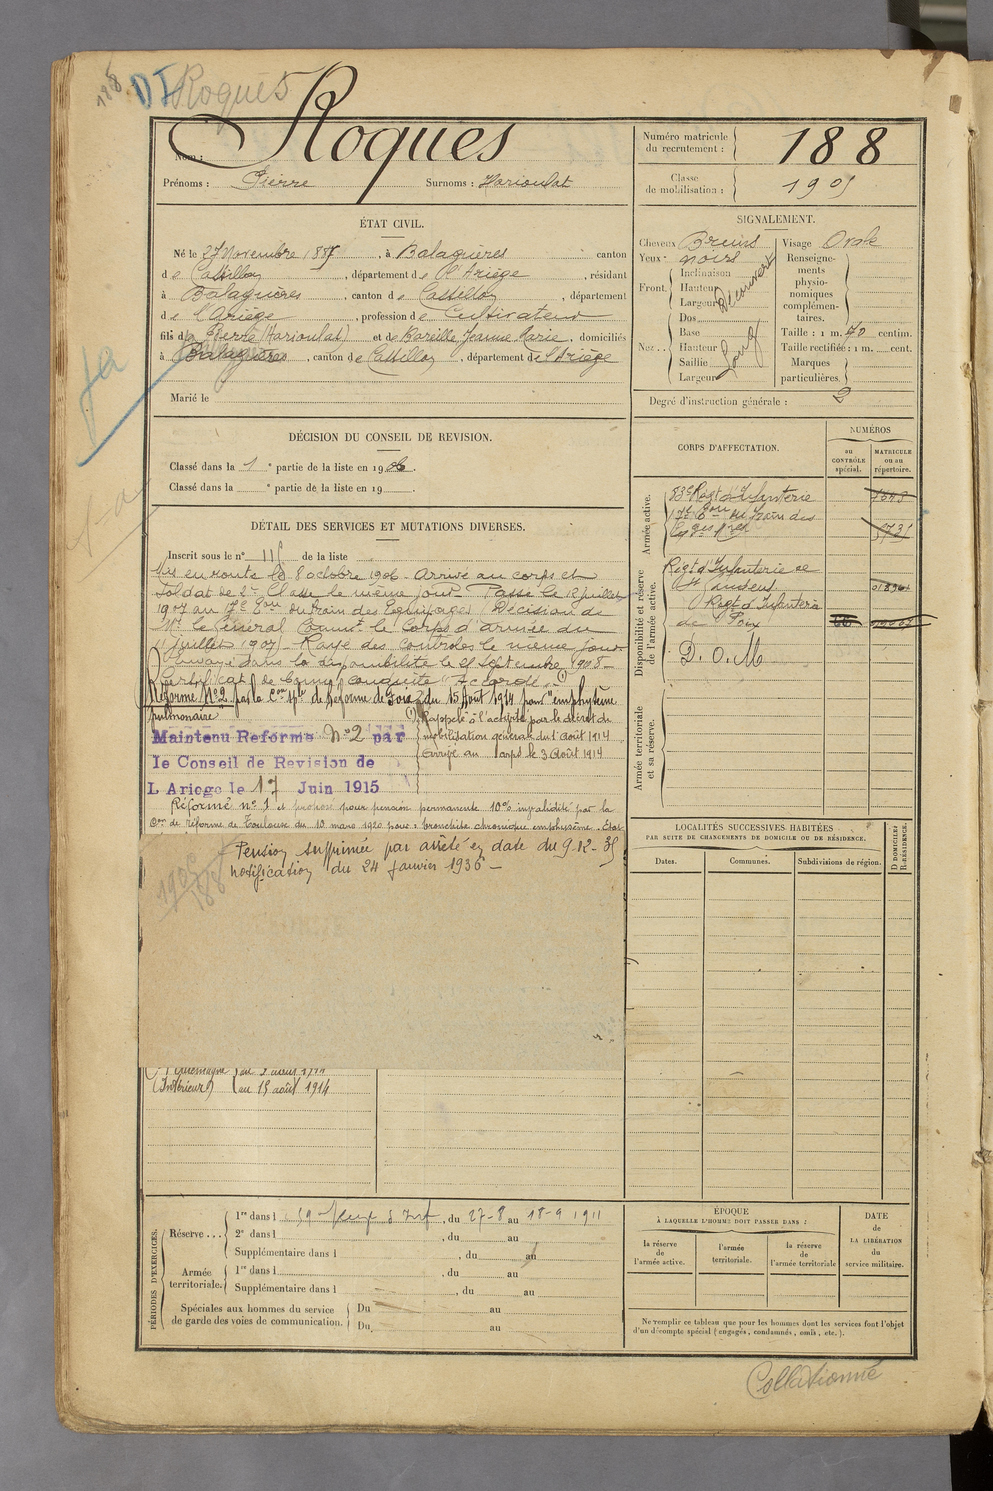 188
DI Roques
Nom : Roques
Prénoms : Pierre Surnoms : Marioulat
Numéro matricule du recrutement : 188
Classe de mobilisation : 1905
ÉTAT CIVIL.
Né le 27 Novembre 1885, à Balaguères canton
de Castillon, département de l'Ariège, résidant
à Balaguères, canton de Castillon, département
de l'Ariège, profession de Cultivateur
fils de Pierre (Marioulat) et de Bareille Jeanne Marie, domiciliés
à Balaguères, canton de Castillon, département de l'Ariège
Marié le
SIGNALEMENT.
Cheveux Bruns
Yeux noirs
Front. Inclinaison
Hauteur
Largeur
Découvert
Nez .. Dos
Base
Hauteur
Saillie
Largeur
Long
Visage Ovale
Renseignements physionomiques complémentaires.
Taille : 1 m. 70 centim.
Taille rectifiée : 1 m. cent.
Marques particulières.
Degré d'instruction générale : 2
DÉCISION DU CONSEIL DE REVISION.
Classé dans la 1e partie de la liste en 1906.
Classé dans la e partie de la liste en 19 .
DÉTAIL DES SERVICES ET MUTATIONS DIVERSES.
Inscrit sous le n° 115 de la liste
Mis en route le 8 octobre 1906. Arrivé au corps et
Soldat de 2e Classe le même jour. Passé le 12 juillet
1907 au 17e Eon du train des Equipages (Décision de
Mr le Général Commt le Corps d'armée du
juillet 1907) - Rayé des contrôles le même jour
Envoyé dans la disponibilité le 28 septembre 1908 -
Certificat de bonne conduite "Accordé" - (1)
Réformé N°2 par la Com sple de Réforme de Foix du 15 Août 1914 pour "emphysème
pulmonaire
(1) Rappelé à l'activité par le décret de
mobilisation générale du 1 Août 1914
Arrivé au corps le 3 Août 1914
Maintenu Reforme N°2 par
le Conseil de Revision de
L Ariege le 17 Juin 1915
Réformé n° 1 et proposé pour pension permanente 10% invalidité par la
Con de réforme de Toulouse du 10 mars 1920 pour : bronchite chronique emphysème. Etat
Pension supprimée par arrêté en date du 9-12-35
notification du 24 Janvier 1936 -
1905
188
(Intérieur) au 15 août 1914
CORPS D'AFFECTATION.
NUMÉROS
au CONTRÔLE spécial.
MATRICULE ou au répertoire.
Armée active.
53e Régt d'Infanterie
17e Eon du Train des
Eqges Mres
Disponibilité et réserve de l'armée active.
Régt d'Infanterie de
St Gaudens
Régt d'Infanterie
de Foix
D. O. M
Armée territoriale et sa réserve.
LOCALITÉS SUCCESSIVES HABITÉES
PAR SUITE DE CHANGEMENTS DE DOMICILE OU DE RÉSIDENCE.
Dates.
Communes.
Subdivisions de région.
D DOMICILE
R. RÉSIDENCE.
PÉRIODES D'EXERCICES.
Réserve . . .
1re dans l 59 Regt d'Inf, du 27-8 au 18-9 1911
2e dans l , du au
Supplémentaire dans l , du au
Armée territoriale.
1re dans l , du au
Supplémentaire dans l , du au
Spéciales aux hommes du service de garde des voies de communication.
Du au
Du au
ÉPOQUE
À LAQUELLE L'HOMME DOIT PASSER DANS :
la réserve de l'armée active.
l'armée territoriale.
la réserve de l'armée territoriale
DATE
de
LA LIBÉRATION
du
service militaire.
Ne remplir ce tableau que pour les hommes dont les services font l'objet
d'un décompte spécial (engagés, condamnés, omis, etc.).
Collationné